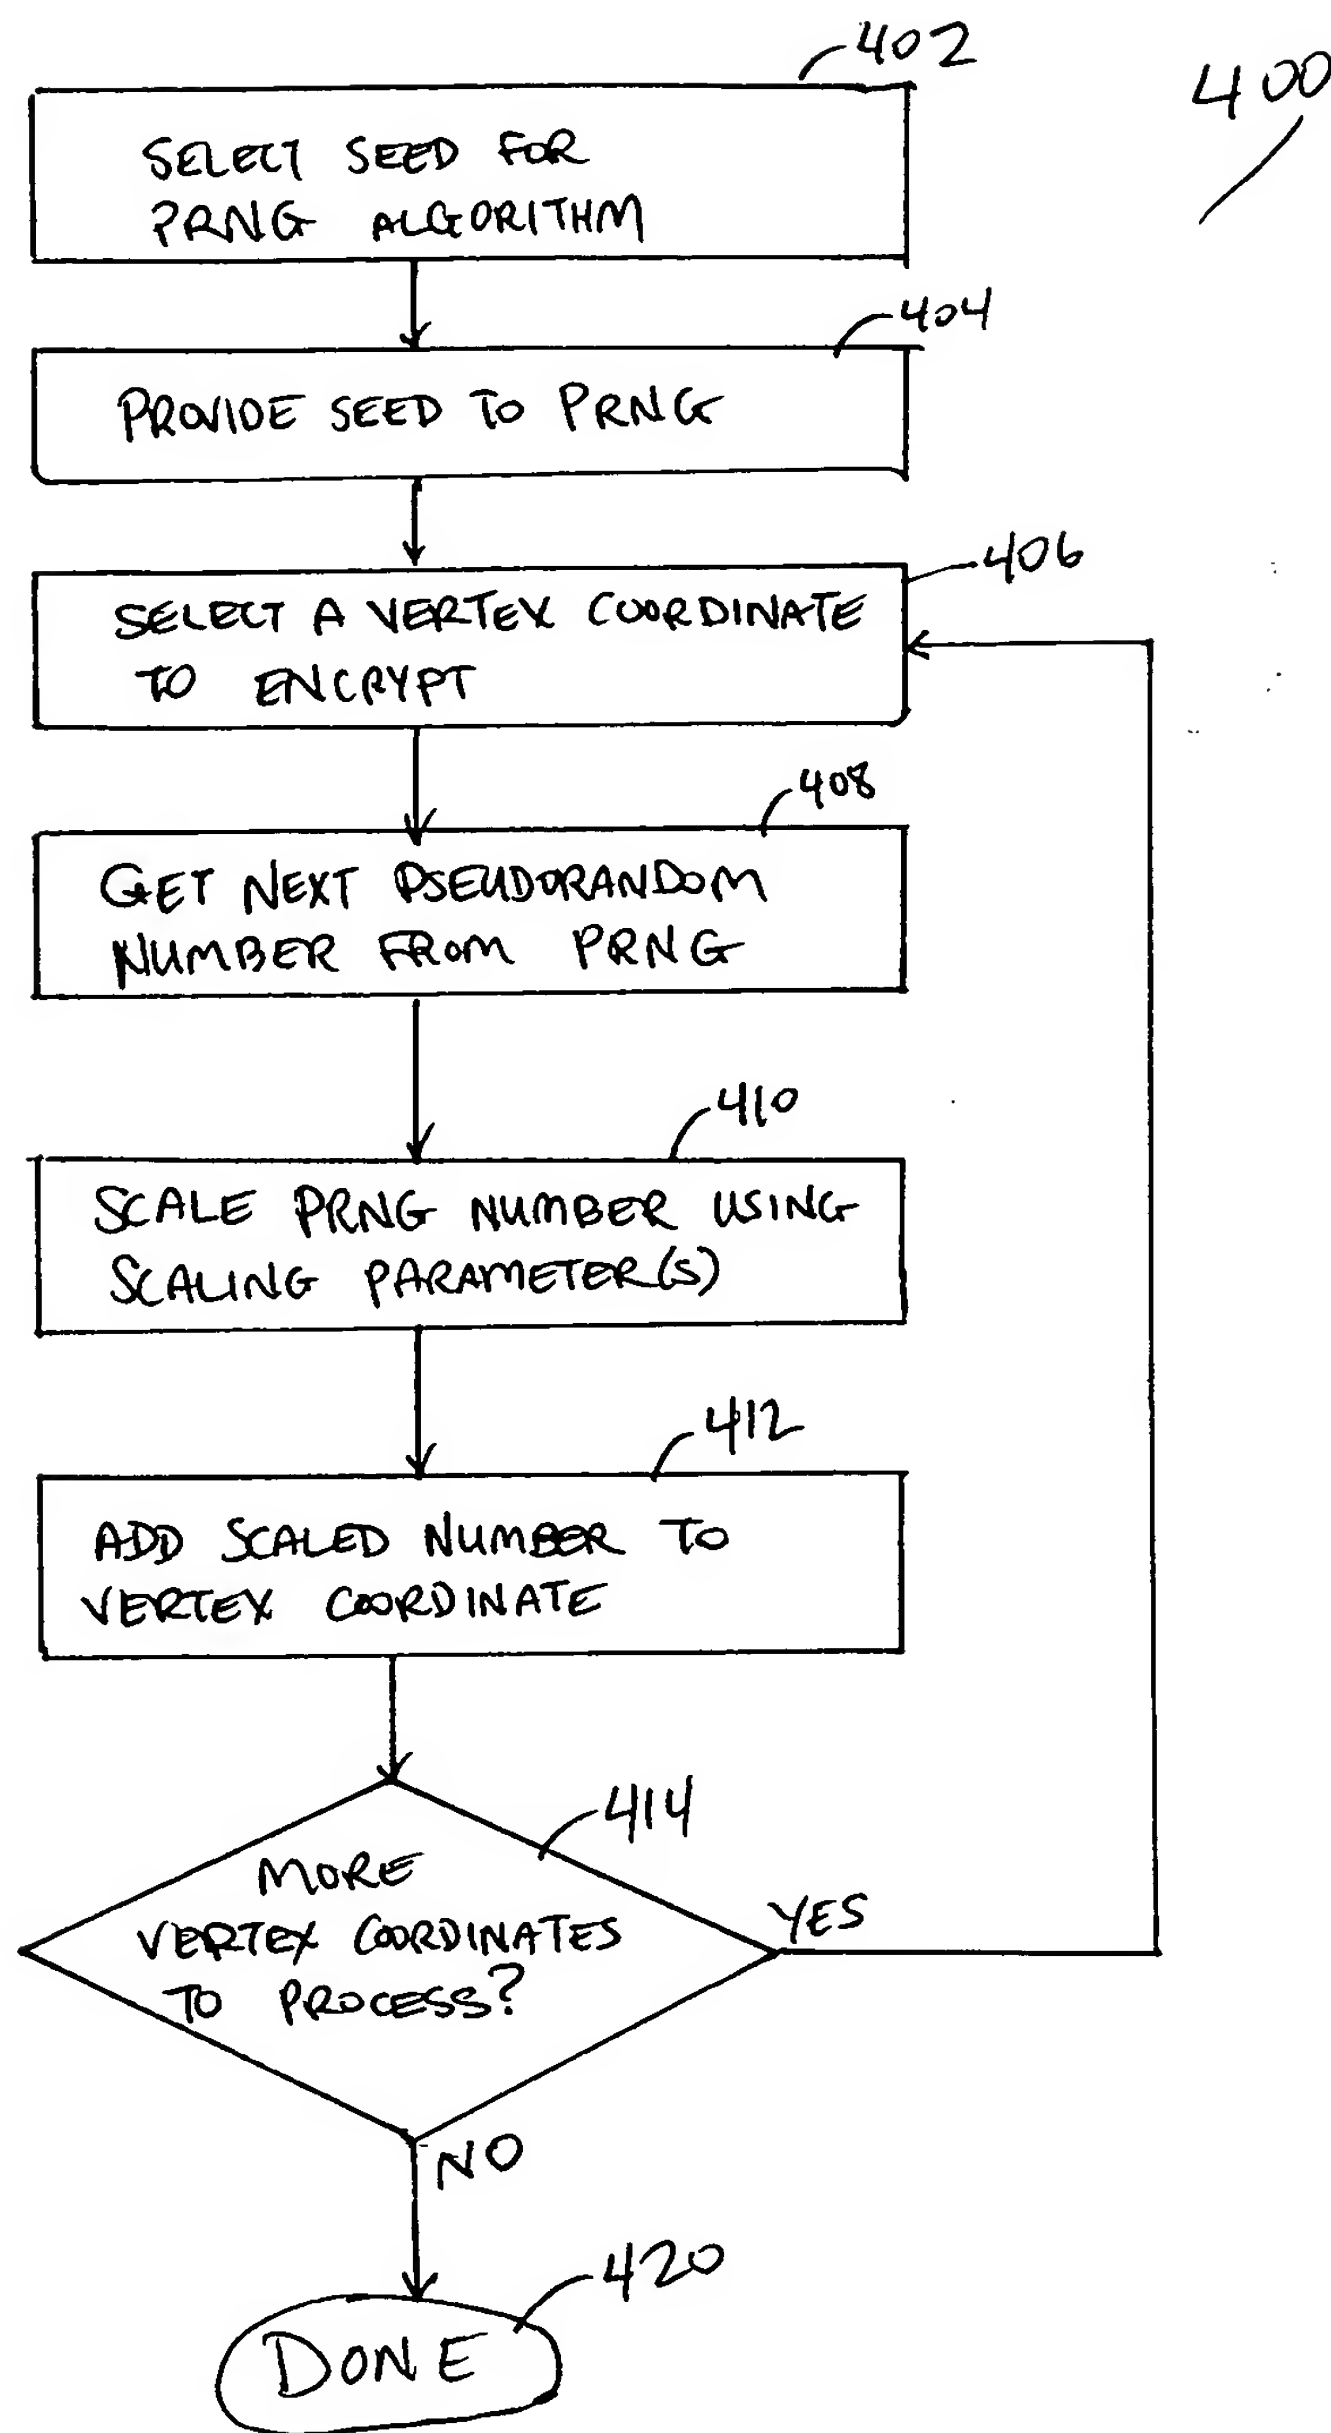 402
400
SELECT SEED FOR
PRNG ALGORITHM
404
PROVIDE SEED TO PRNG
406
SELECT A VERTEX COORDINATE
TO ENCRYPT
408
GET NEXT PSEUDORANDOM
NUMBER FROM PRNG
410
SCALE PRNG NUMBER USING
SCALING PARAMETER(S)
412
ADD SCALED NUMBER TO
VERTEX COORDINATE
414
MORE
VERTEX COORDINATES
TO PROCESS?
YES
NO
420
DONE